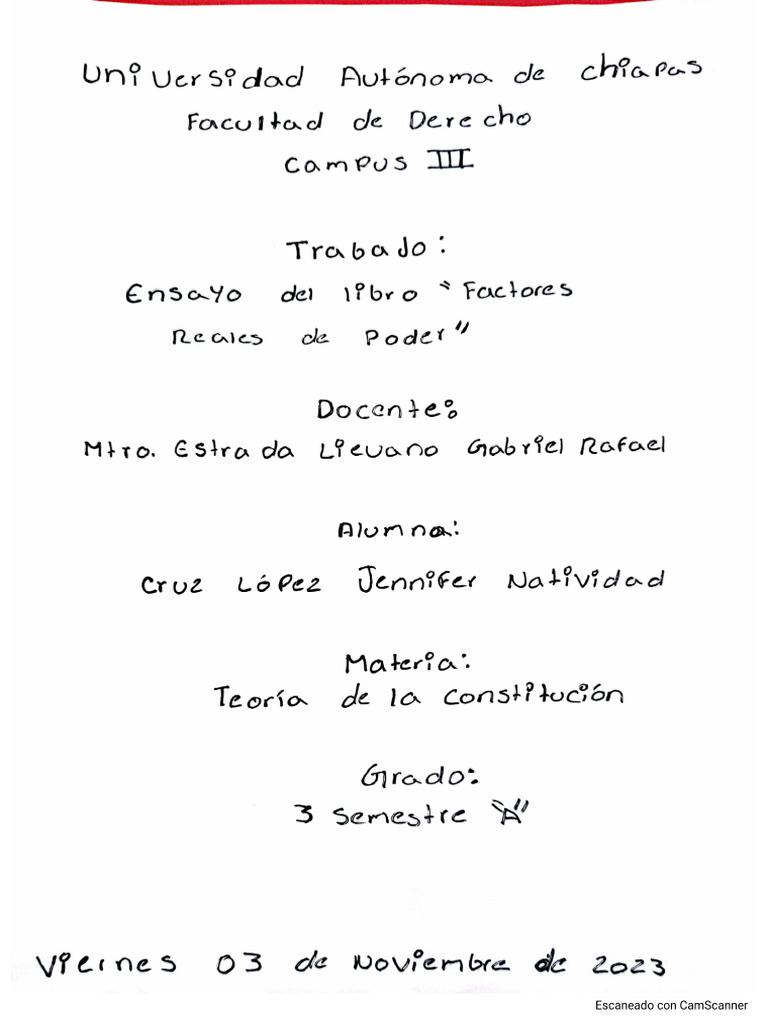 Universidad Autónoma de Chiapas
Facultad de Derecho
Campus III
Trabado:
Ensayo del libro "Factores
Reales de Poder"
Docente:
Mtro. Estrada Lievano Gabriel Rafael
Alumna:
Cruz López Jennifer Natividad
Materia:
Teoría de la Constitución
Grado:
3 Semestre "A"
Viernes 03 de Noviembre de 2023
Escaneado con CamScanner